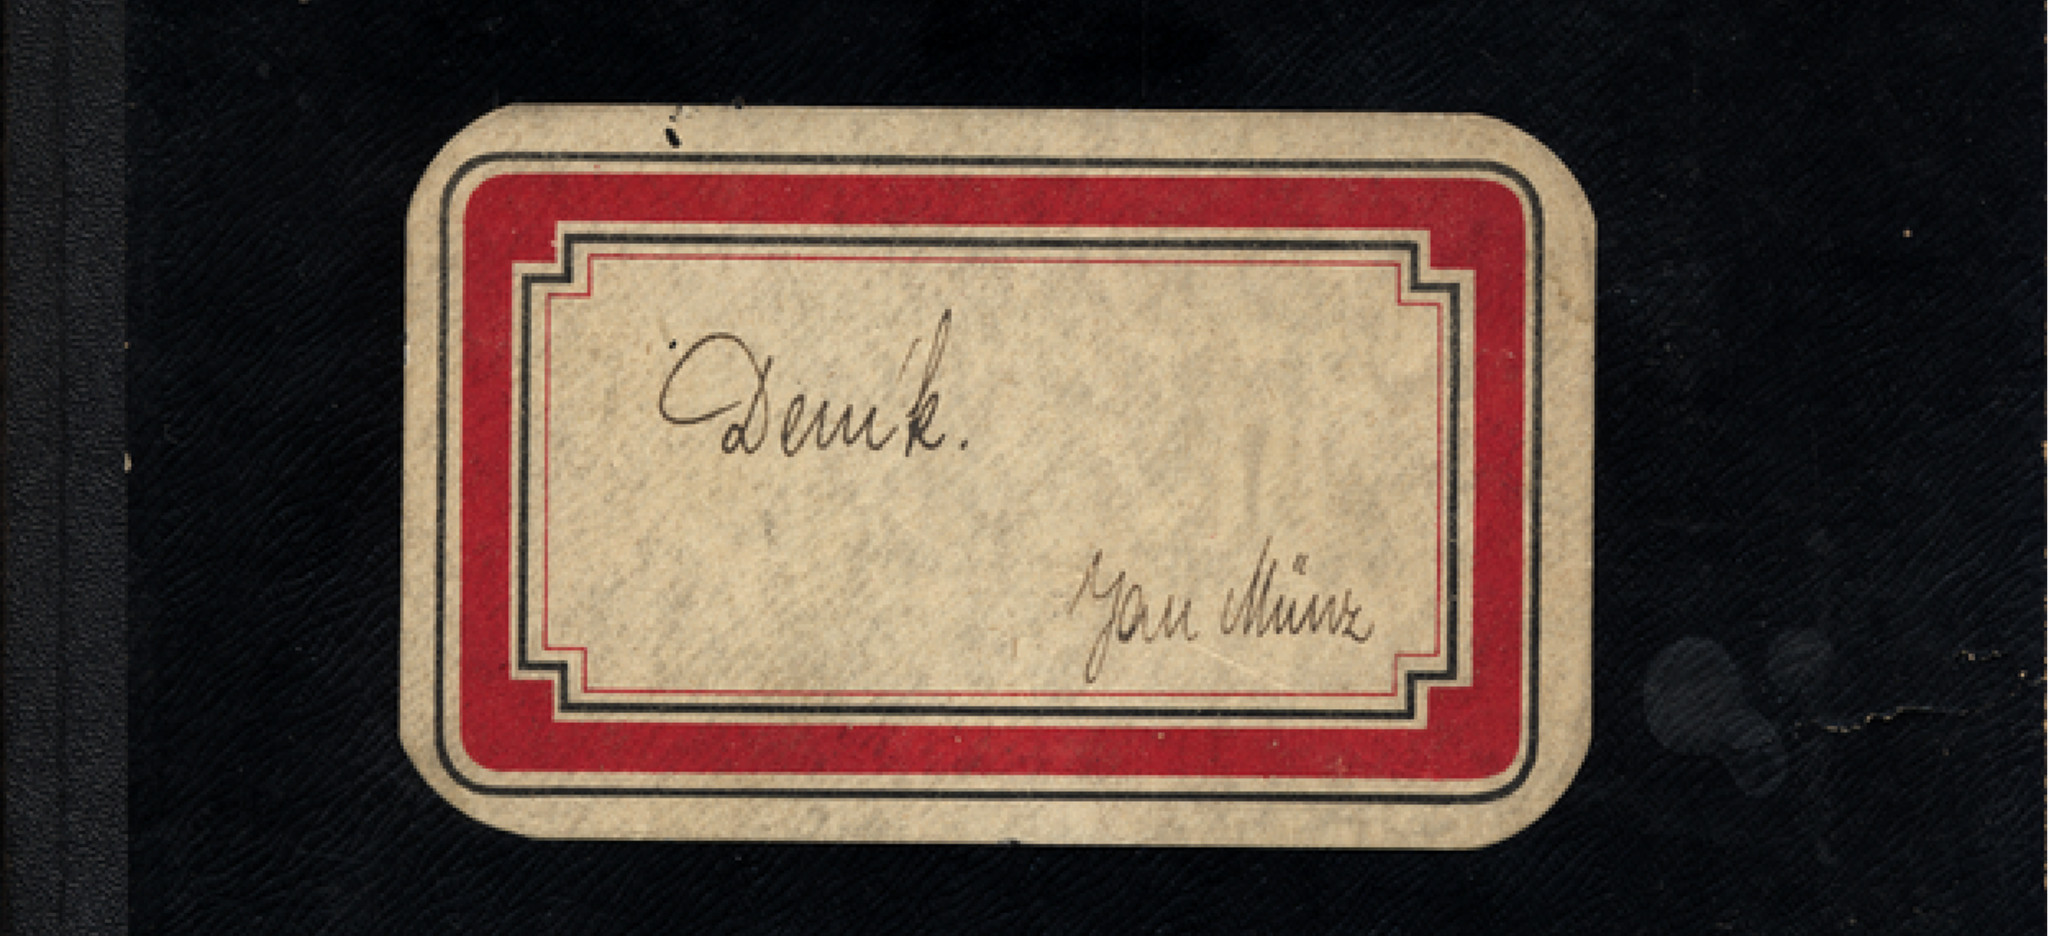 Deník.
Jan Münz